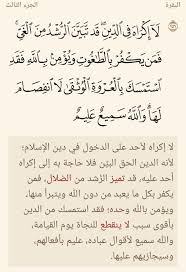 البقرة الجزء الثالث
لَآ إِكْرَاهَ فِي ٱلدِّينِۖ قَد تَّبَيَّنَ ٱلرُّشْدُ مِنَ ٱلْغَيِّۚ
فَمَن يَكْفُرْ بِٱلطَّٰغُوتِ وَيُؤْمِنۢ بِٱللَّهِ فَقَدِ
ٱسْتَمْسَكَ بِٱلْعُرْوَةِ ٱلْوُثْقَىٰ لَا ٱنفِصَامَ
لَهَاۗ وَٱللَّهُ سَمِيعٌ عَلِيمٌ
لا إكراه لأحد على الدخول في دين الإسلام؛
لأنه الدين الحق البيّن فلا حاجة به إلى إكراه
أحد عليه، قد تميز الرُشد من الضلال، فمن
يكفر بكل ما يعبد من دون الله ويتبرأ منها،
ويؤمن بالله وحده؛ فقد استمسك من الدين
بأقوى سبب لا ينقطع للنجاة يوم القيامة،
والله سميع لأقوال عباده، عليم بأفعالهم،
وسيجازيهم عليها.